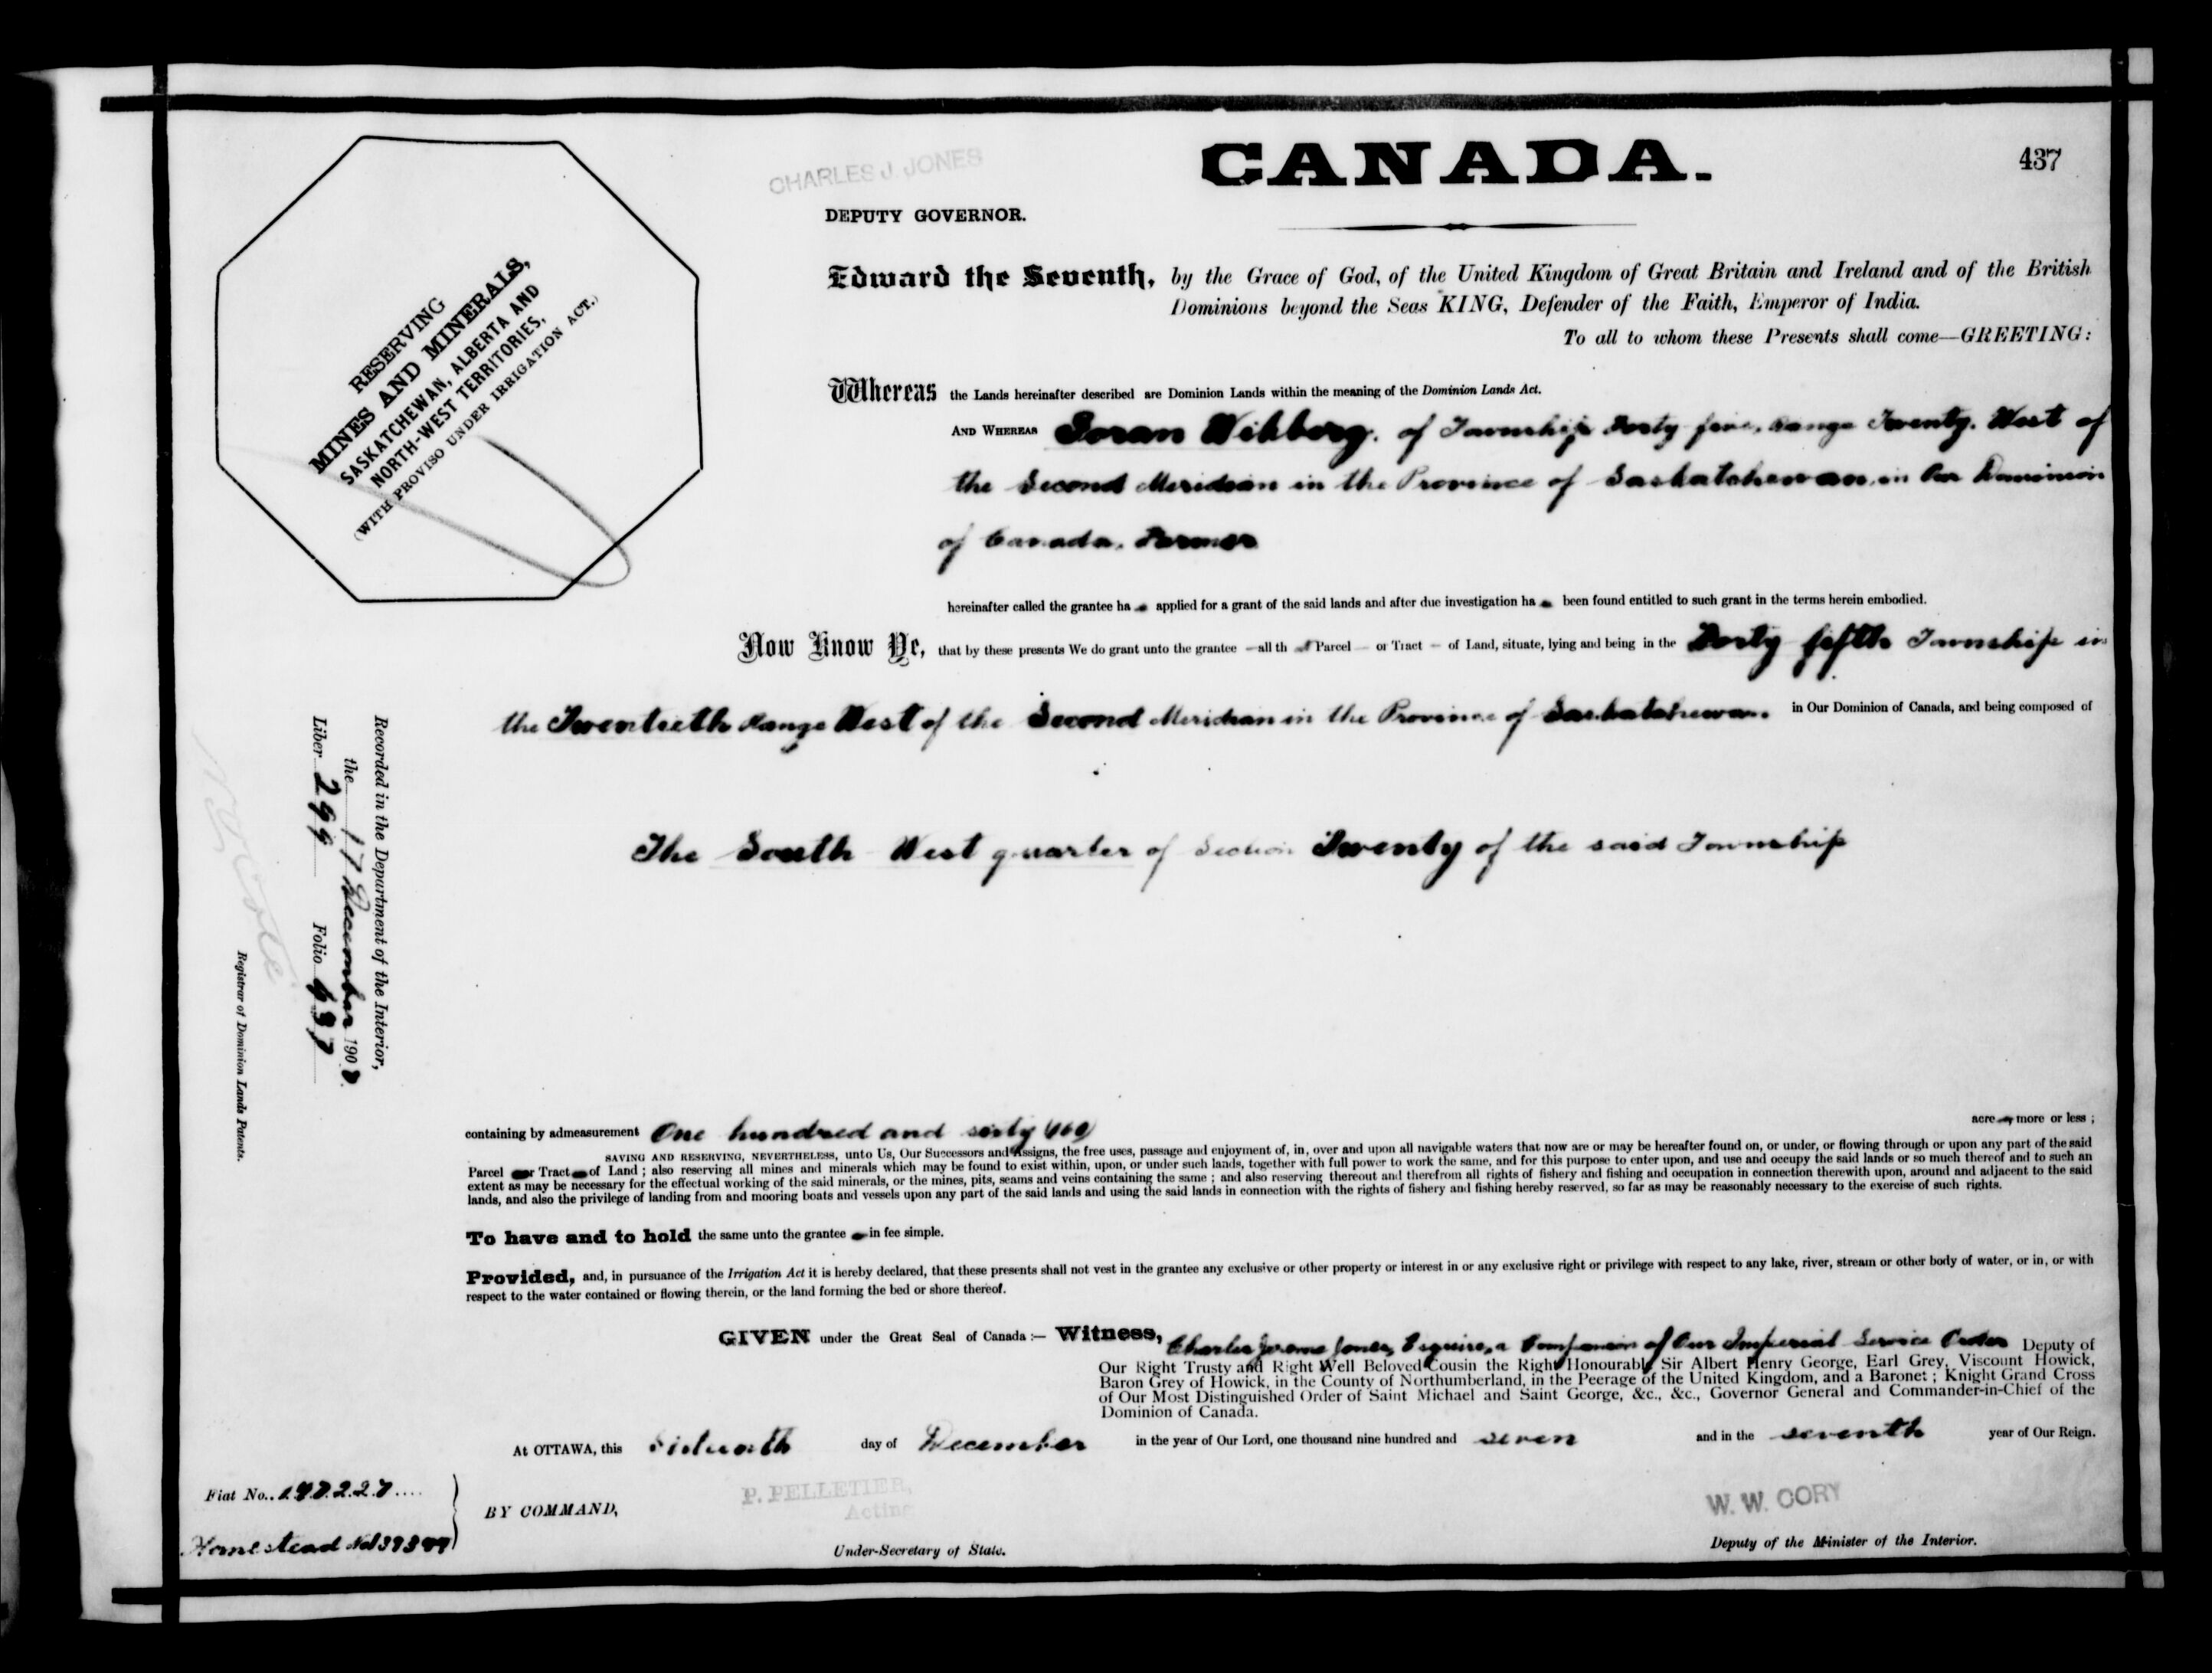 CANADA.
437
CHARLES J. JONES
DEPUTY GOVERNOR.
RESERVING
MINES AND MINERALS,
SASKATCHEWAN, ALBERTA AND
NORTH-WEST TERRITORIES,
(WITH PROVISO UNDER IRRIGATION ACT.)
Edward the Seventh, by the Grace of God, of the United Kingdom of Great Britain and Ireland and of the British
Dominions beyond the Seas KING, Defender of the Faith, Emperor of India.
To all to whom these Presents shall come—GREETING:
Whereas the Lands hereinafter described are Dominion Lands within the meaning of the Dominion Lands Act.
AND WHEREAS Goran Wikberg, of Township Forty five, Range Twenty, West of
the Second Meridian in the Province of Saskatchewan, in Our Dominion
of Canada, Farmer
hereinafter called the grantee ha applied for a grant of the said lands and after due investigation ha been found entitled to such grant in the terms herein embodied.
Now Know Ye, that by these presents We do grant unto the grantee — all th at Parcel — or Tract — of Land, situate, lying and being in the Forty fifth Township in
the Twentieth Range West of the Second Meridian in the Province of Saskatchewan. in Our Dominion of Canada, and being composed of
The South West quarter of Section Twenty of the said Township
Recorded in the Department of the Interior,
the 17 December 190
Liber 299 Folio 437
Registrar of Dominion Lands Patents.
containing by admeasurement One hundred and sixty (160) acre more or less ;
SAVING AND RESERVING, NEVERTHELESS, unto Us, Our Successors and Assigns, the free uses, passage and enjoyment of, in, over and upon all navigable waters that now are or may be hereafter found on, or under, or flowing through or upon any part of the said
Parcel or Tract of Land ; also reserving all mines and minerals which may be found to exist within, upon, or under such lands, together with full power to work the same, and for this purpose to enter upon, and use and occupy the said lands or so much thereof and to such an
extent as may be necessary for the effectual working of the said minerals, or the mines, pits, seams and veins containing the same ; and also reserving thereout and therefrom all rights of fishery and fishing and occupation in connection therewith upon, around and adjacent to the said
lands, and also the privilege of landing from and mooring boats and vessels upon any part of the said lands and using the said lands in connection with the rights of fishery and fishing hereby reserved, so far as may be reasonably necessary to the exercise of such rights.
To have and to hold the same unto the grantee in fee simple.
Provided, and, in pursuance of the Irrigation Act it is hereby declared, that these presents shall not vest in the grantee any exclusive or other property or interest in or any exclusive right or privilege with respect to any lake, river, stream or other body of water, or in, or with
respect to the water contained or flowing therein, or the land forming the bed or shore thereof.
GIVEN under the Great Seal of Canada :— Witness, Charles Jerome Jones, Esquire, a Companion of Our Imperial Service Order Deputy of
Our Right Trusty and Right Well Beloved Cousin the Right Honourable Sir Albert Henry George, Earl Grey, Viscount Howick,
Baron Grey of Howick, in the County of Northumberland, in the Peerage of the United Kingdom, and a Baronet ; Knight Grand Cross
of Our Most Distinguished Order of Saint Michael and Saint George, &c., &c., Governor General and Commander-in-Chief of the
Dominion of Canada.
At OTTAWA, this Sixteenth day of December in the year of Our Lord, one thousand nine hundred and seven and in the seventh year of Our Reign.
Fiat No.
BY COMMAND,
P. PELLETIER,
Acting
Under-Secretary of State.
W. W. CORY
Deputy of the Minister of the Interior.
Homestead No